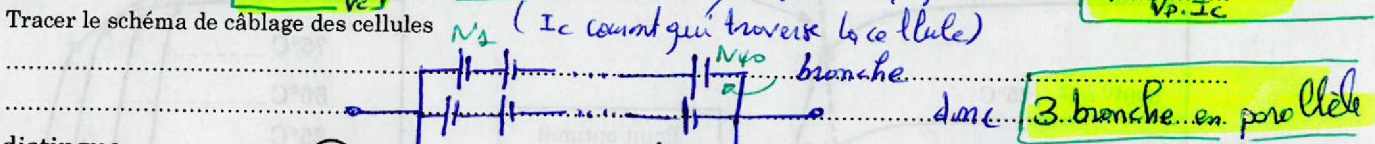 Vc
Vp.Ic
Tracer le schéma de câblage des cellules (Ic courant qui traverse la cellule)
N1 N40
branche
donc 3 branche en parallèle